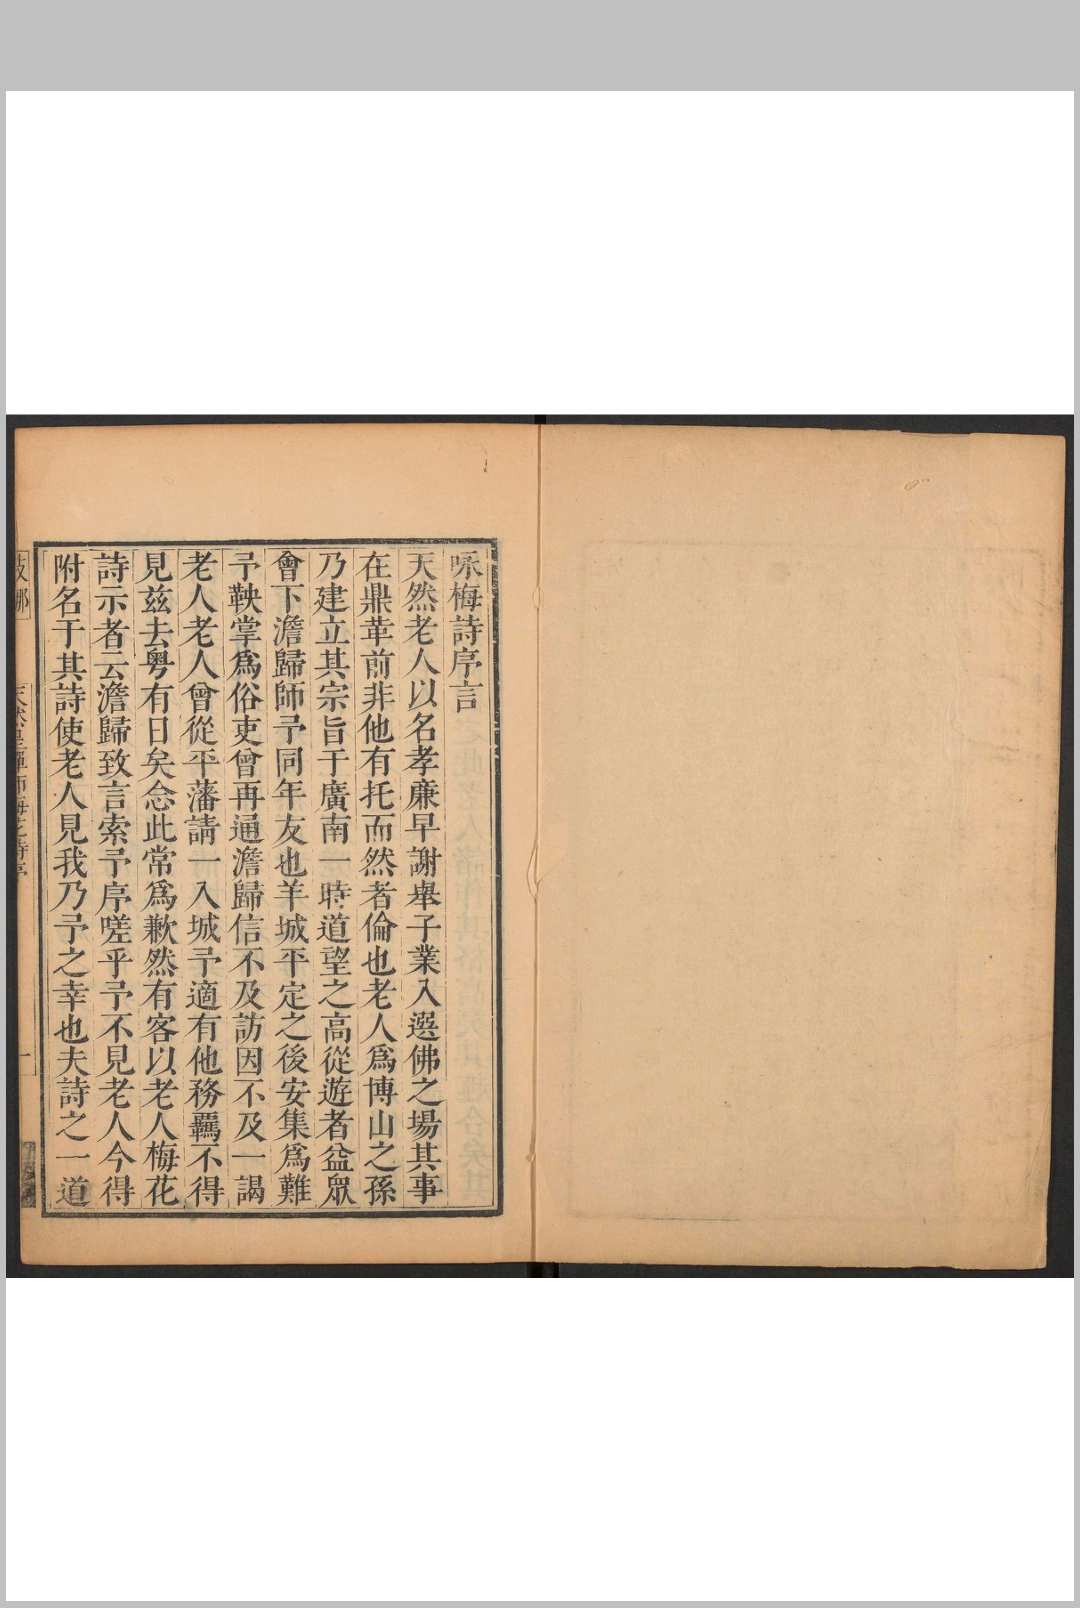 咏梅詩序言
天然老人以名孝廉早謝舉子業入選佛之場其事
在鼎革前非他有托而然者倫也老人爲博山之孫
乃建立其宗旨于廣南一時道望之高從遊者益眾
會下澹歸師予同年友也羊城平定之後安集爲難
予鞅掌爲俗吏曾再通澹歸信不及訪因不及一謁
老人老人曾從平藩請一入城予適有他務羈不得
見茲去粤有日矣念此常爲歉然有客以老人梅花
詩示者云澹歸致言索予序嗟乎予不見老人今得
附名于其詩使老人見我乃予之幸也夫詩之一道